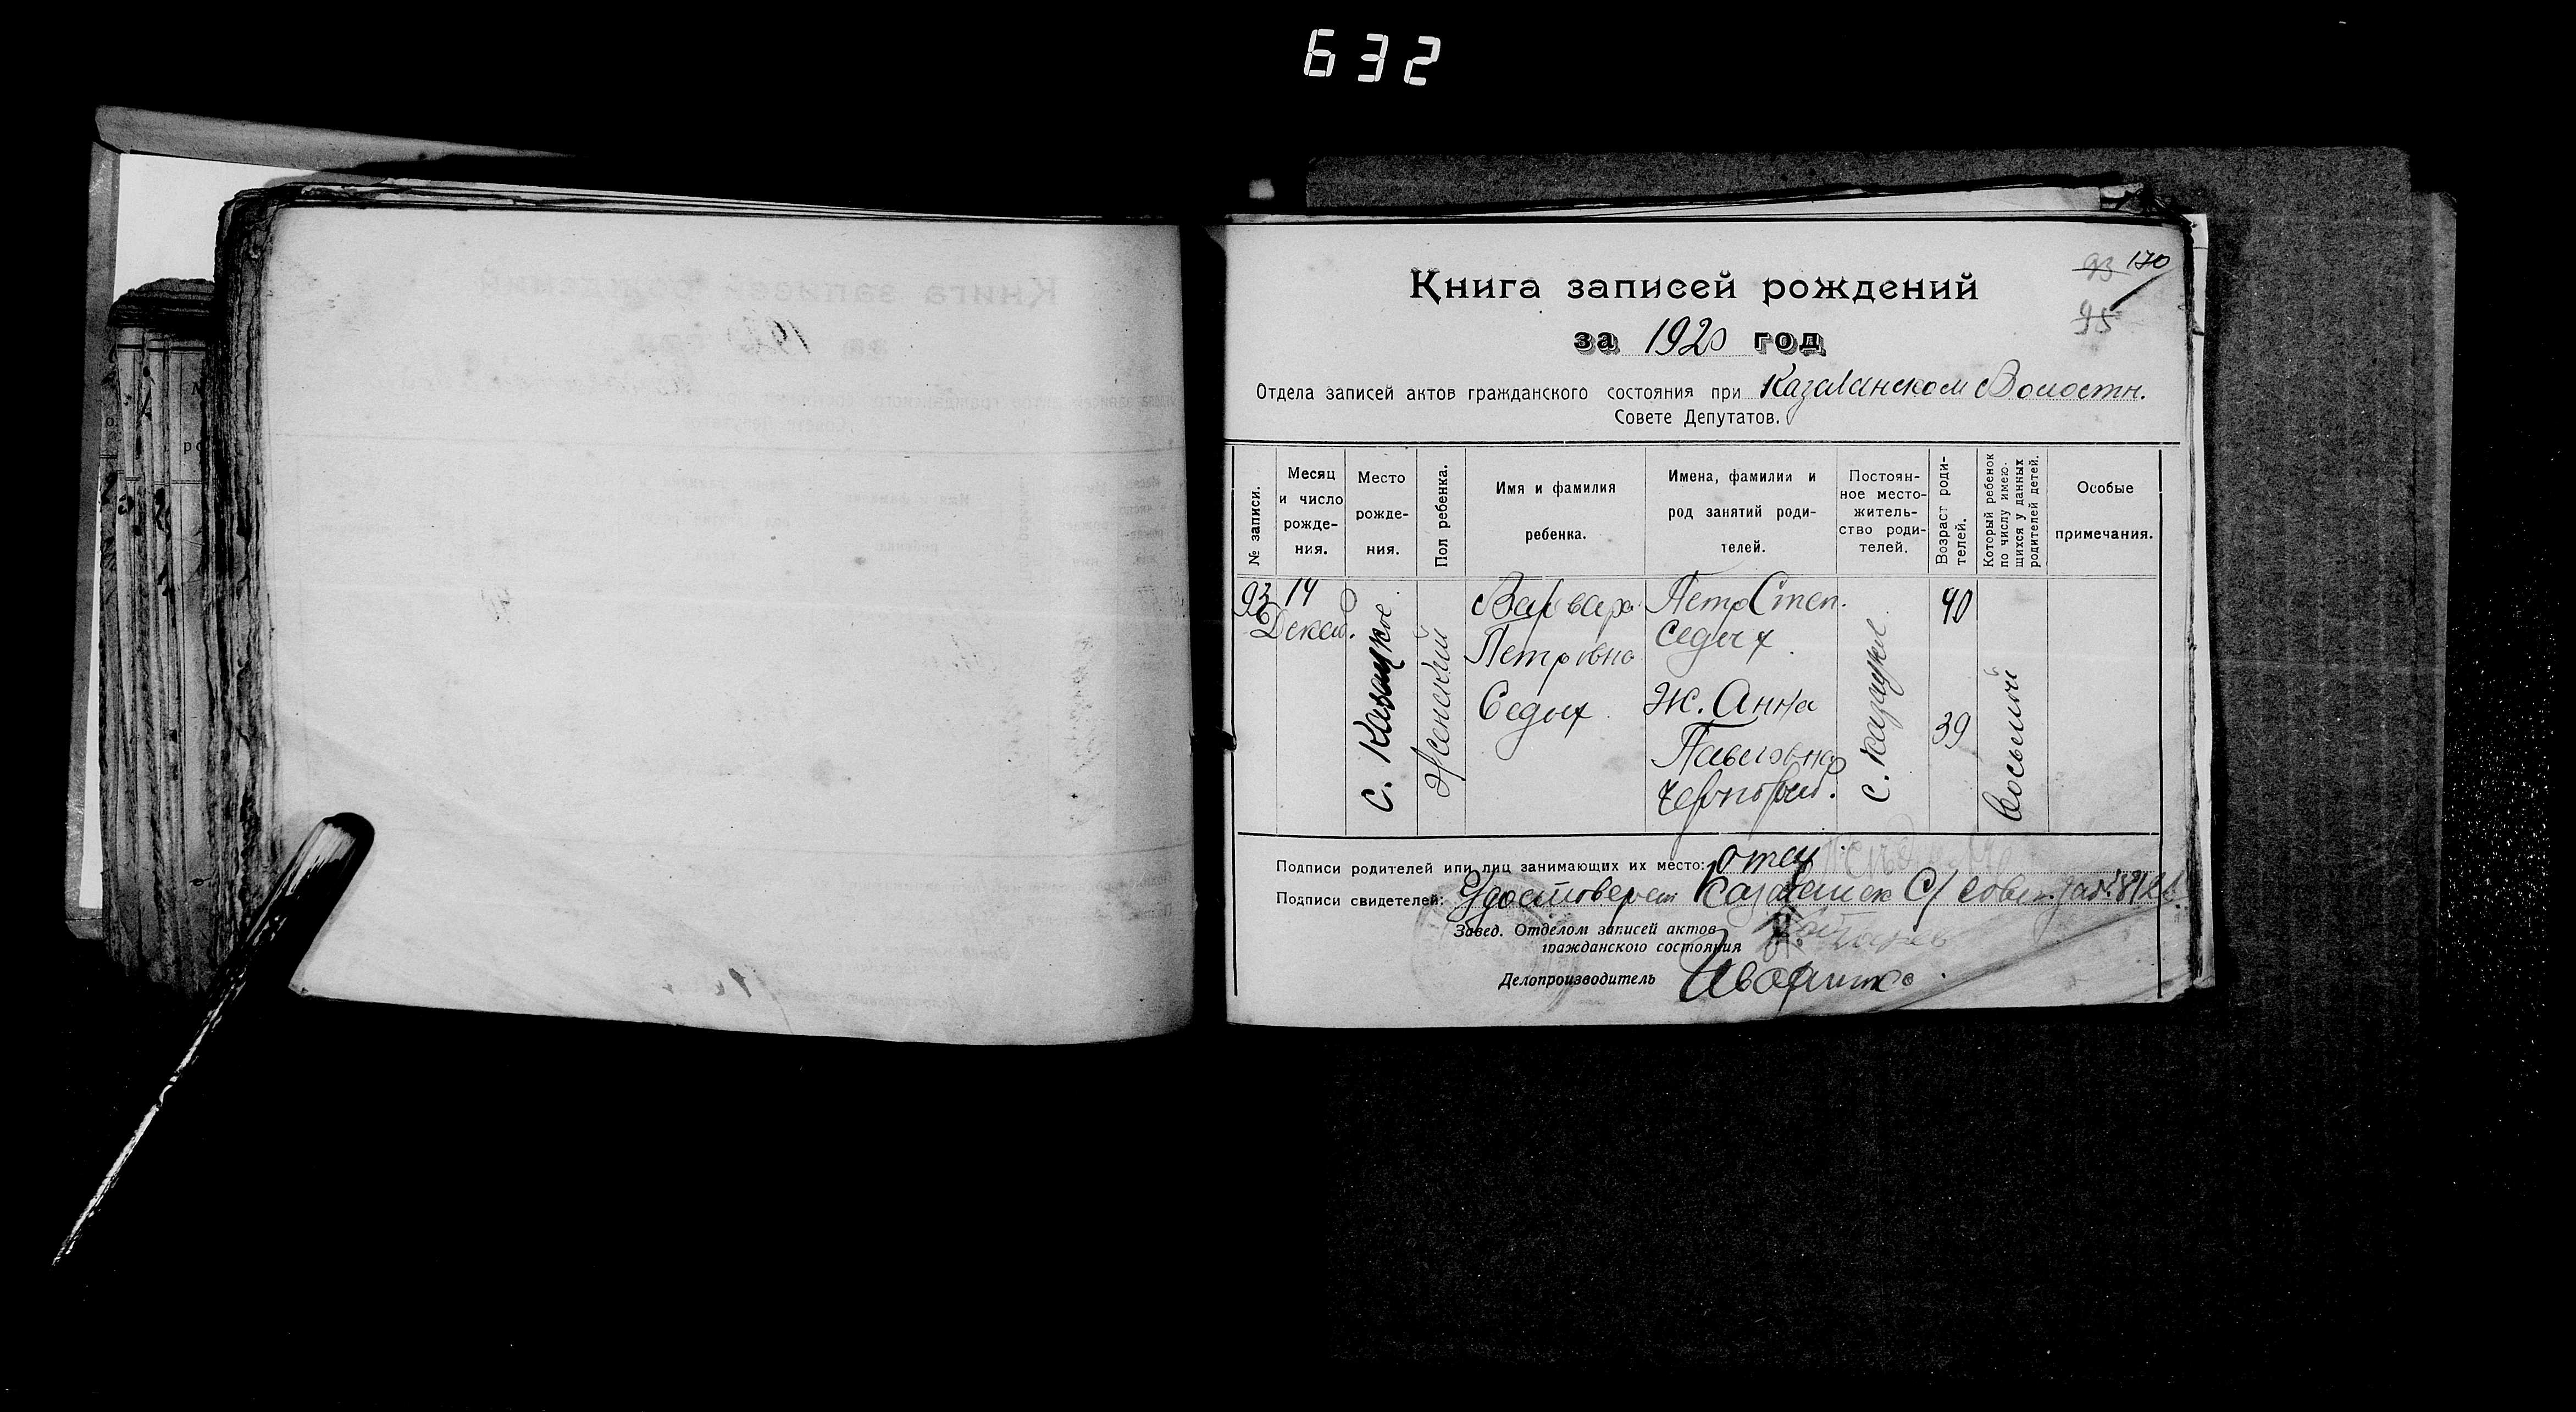 632
93 170
95
Книга записей рождений
за 1920 год
Отдела записей актов гражданского состояния при Казаланском Волостн.
Совете Депутатов.
№ записи.
Месяц и число рожде- ния.
Место рожде- ния.
Пол ребенка.
Имя и фамилия ребенка.
Имена, фамилии и род занятий роди- телей.
Постоян- ное место- житель- ство роди- телей.
Возраст роди- телей.
Который ребенок по числу имею- щихся у данных родителей детей.
Особые примечания.
93
14
Декаб.
с. Казацкое
Женский
Варвара
Петровна
Седых
Петр Степ.
Седых
Ж. Анна
Павловна
с. Казацкое
40
39
восьмый
Подписи родителей или лиц занимающих их место: отец
Подписи свидетелей: Удостоверен С/совет.
Завед. Отделом записей актов
гражданского состояния
Делопроизводитель